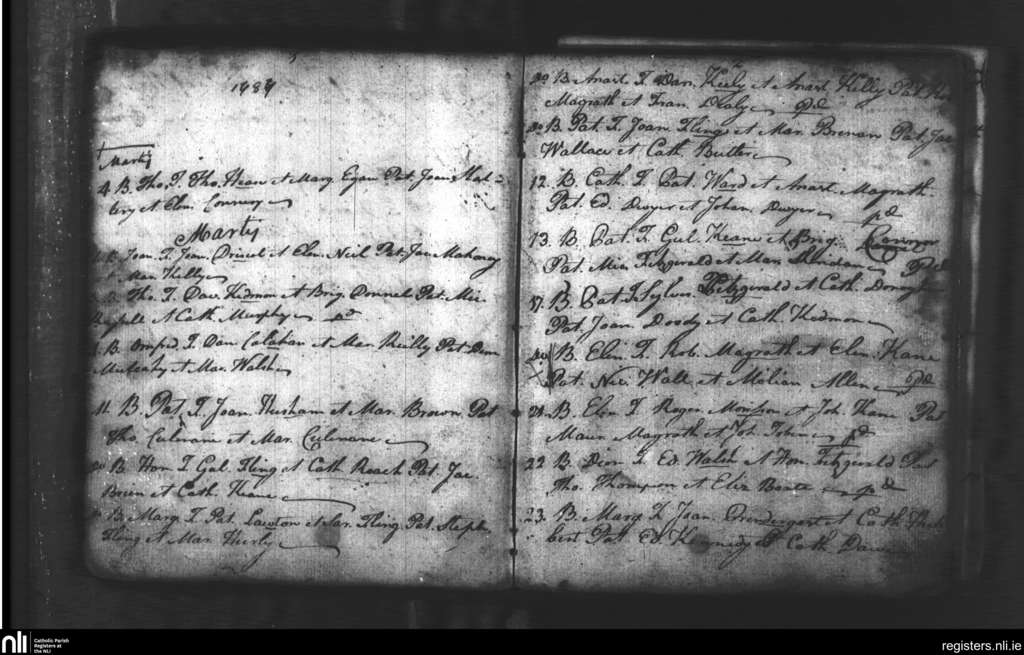 1789
Martij
4. B. Tho. I. Tho. Hean et Marg. Egan Pat. Joan Slat=
tery et Elen. Connery
Martij
B. Joan. I. Joan. Driscol et Elen. Neil Pat. Jam Mahony
et Mar. Kelly
Tho. I. Dav. Hedmon et Brig. Connel Pat. Mic
et Cath. Murphy pd
B. I. Dan Calahan et Mar. Reilly Pat. Dem
Mulcahy et Mar. Walsh
11. B. Pat. I. Joan. et Mar. Brown Pat
Tho. Culenane et Mar. Culenane
20 B. Hon I. Gul. Fling et Cath Roach Pat. Jac.
Breen et Cath. Keane
B. Marg. I. Pat. Lawton et Sar. Fling. Pat. Steph.
Fling et Mar. Hurly
29 B. Anast. I. Dan. Keely et Anast. Kelly Pat.
Magrath et Fran. Daly pd
30 B. Pat. I. Joan. Fling et Mar. Brenan Pat. Jac
Wallace et Cath. Butler
12. B. Cath. I. Pat. Ward et Anast. Magrath.
Pat. Ed. Dwyer et Johan. Dwyer pd
13. B. Pat. I. Gul. Keane et Brig.
Pat. Mic. Fitzgerald et Mar. Sheridan pd
17. B. Pat. I. Sylvr. Fitzgerald et Cath.
Pat. Joan. Doody et Cath. Hedmon
20 B. Elen. I. Rob. Magrath et Elen. Kane
Pat. Nic. Wall et Allen pd
21. B. Elen. I. Roger et Joh. Kane Pat
Maur Magrath et Joh. pd
22 B. Dion I. Ed. Walsh et Hon. Fitzgerald Pat
Tho. Thompson et Eliz pd
23. B. Marg I. Joan. Prendergast et Cath.
Pat. Ed. Kennedy et Cath.
nli
Catholic Parish
Registers at
the NLI
registers.nli.ie